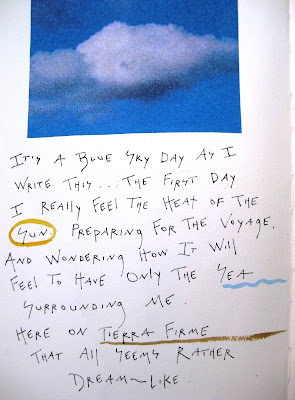 IT'S A BLUE SKY DAY AS I
WRITE THIS... THE FIRST DAY
I REALLY FEEL THE HEAT OF THE
SUN. PREPARING FOR THE VOYAGE.
AND WONDERING HOW IT WILL
FEEL TO HAVE ONLY THE SEA
SURROUNDING ME.
HERE ON TIERRA FIRME
THAT ALL SEEMS RATHER
DREAM~LIKE.